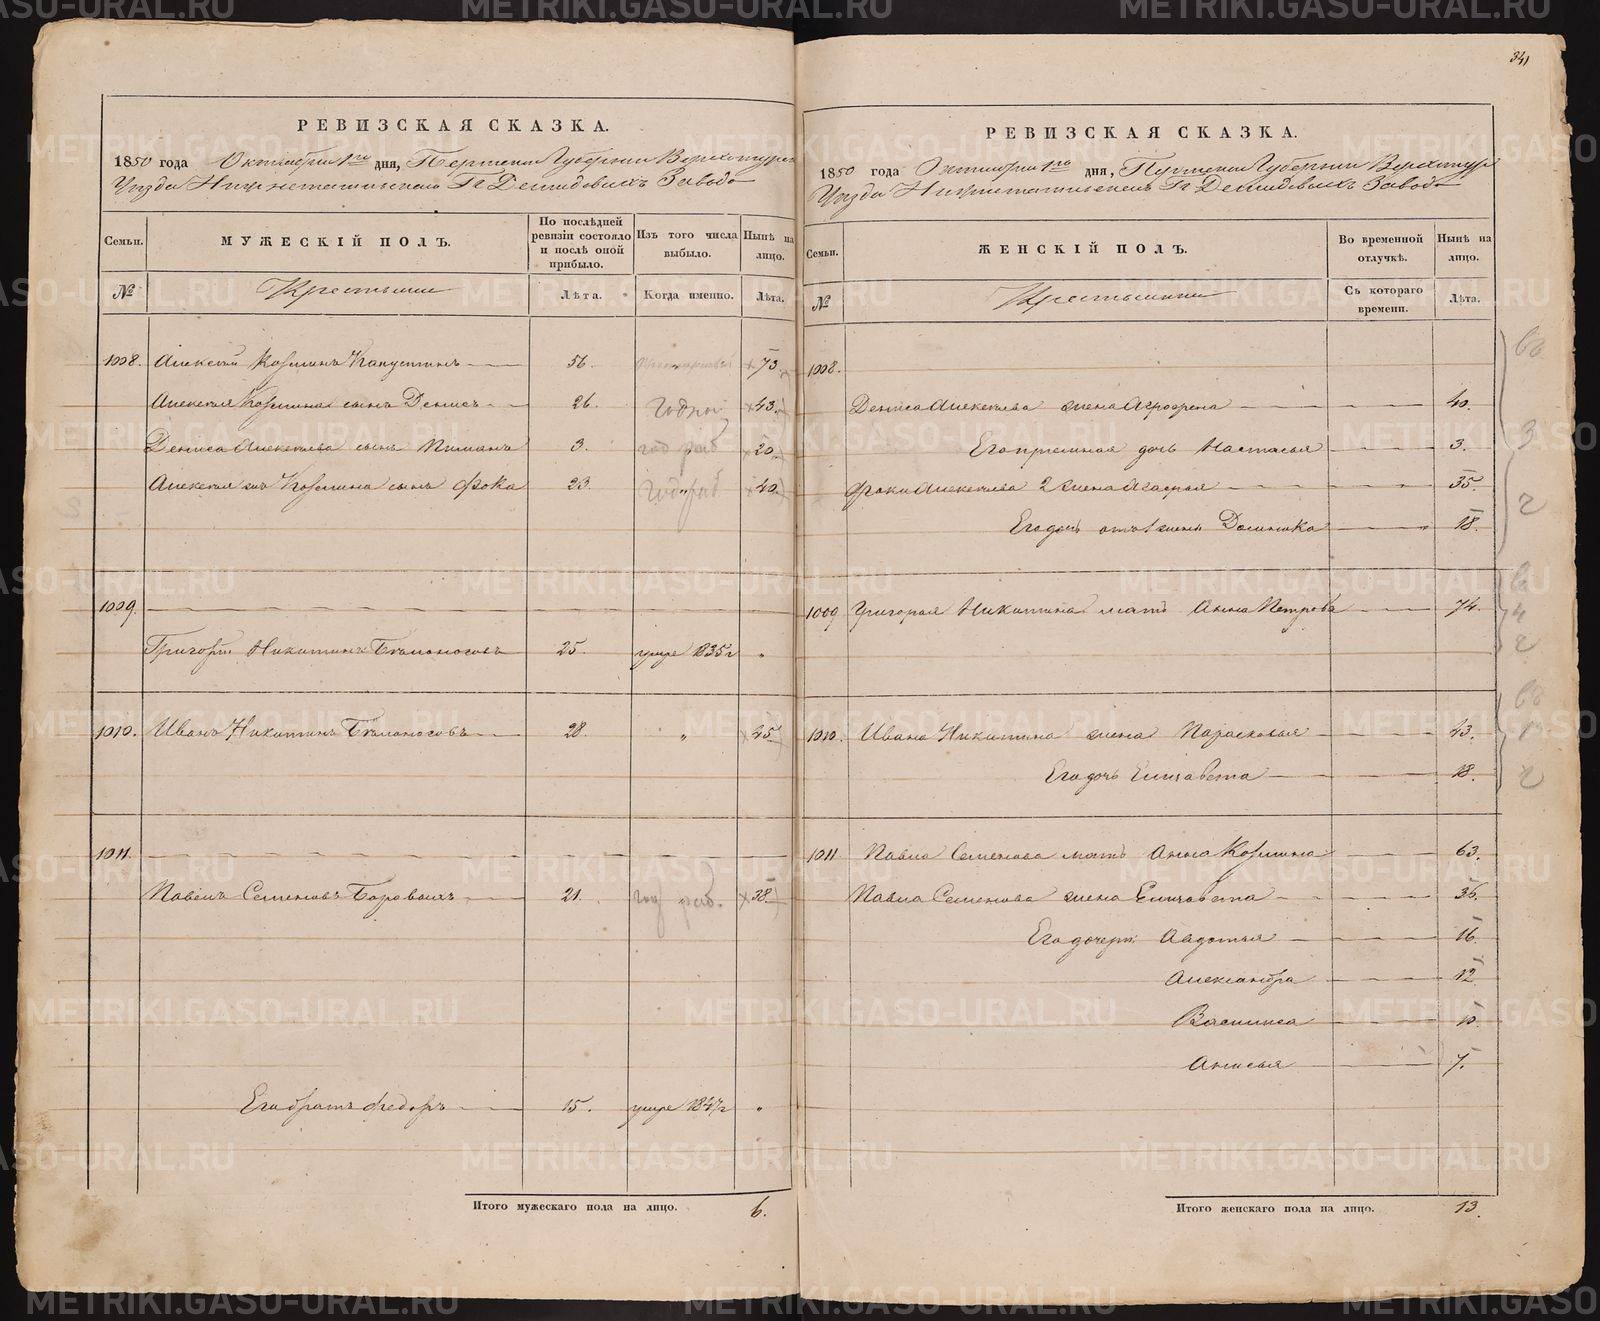 341
РЕВИЗСКАЯ СКАЗКА.
1850 года Октября 1го дня, Пермской Губернии Верхотурск
Уѣзда Нижнетагильскаго Гг Демидовыхъ Завода
Семьи.
МУЖЕСКІЙ ПОЛЪ.
По послѣдней ревизіи состояло и послѣ оной прибыло.
Изъ того числа выбыло.
Нынѣ на лицо.
№
Крестьяне
Лѣта.
Когда именно.
Лѣта.
1008. Алексей Козминъ Капустинъ 56. 73.
Алексѣя Козмина сынъ Денисъ 26. годны 43.
Дениса Алексѣева сынъ Пиманъ 3. год раб 20.
Алексѣя Козмина сынъ Фока 23. год раб 40.
1009.
Григорій Никитинъ Бѣлоносовъ 25. умре 1835 г "
1010. Иванъ Никитинъ Бѣлоносовъ 28. " 45.
1011.
Павелъ Семеновъ Боровыхъ 21. год раб. 38.
Его братъ Федоръ 15. умре 1847 г "
Итого мужескаго пола на лицо. 6.
РЕВИЗСКАЯ СКАЗКА.
1850 года Октября 1го дня, Пермской Губернии Верхотур
Уѣзда Нижнетагильскаго Гг Демидовыхъ Завода
Семьи.
ЖЕНСКІЙ ПОЛЪ.
Во временной отлучкѣ.
Нынѣ на лицо.
№
Крестьянки
Съ котораго времени.
Лѣта.
1008.
Дениса Алексѣева жена Агрофена 40.
Его приемная дочь Настасья 3.
Фоки Алексѣева 2 жена Агафья 35.
Его дочь отъ 1 жены Домника 18.
1009 Григорья Никитина мать Анна Петрова 74.
1010. Ивана Никитина жена Парасковья 43.
Его дочь Елизавета 18.
1011 Павла Семенова мать Анна Козмина 63.
Павла Семенова жена Елизавета 36.
Его дочери: Авдотья 16
Александра 12
Василиса 10.
Анисья 7.
Итого женскаго пола на лицо. 13.
METRIKI.GASO-URAL.RU